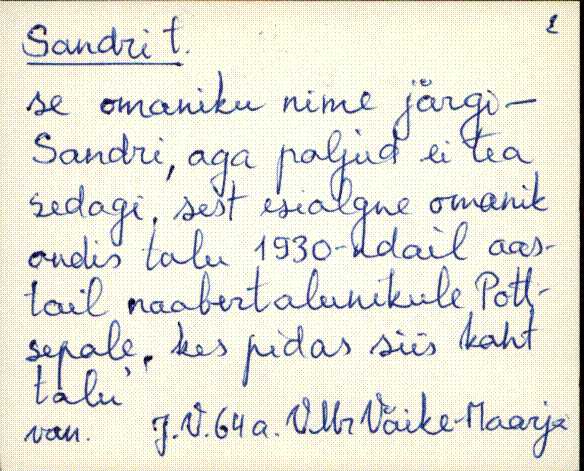 2
Sandri t.
se omaniku nime järgi -
Sandri, aga paljud ei tea
sedagi, sest esialgne omanik
andis talu 1930-ndail aas-
tail naabertalunikule Pott-
sepale, kes pidas siis kaht
talu
van. J.V. 64 a. VMr Väike-Maarja